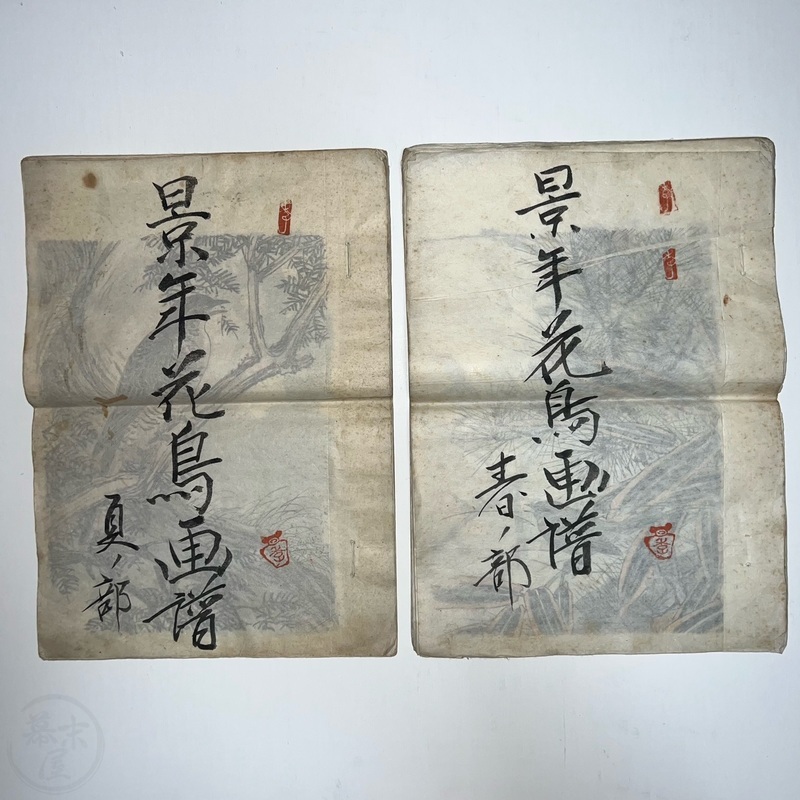 景年花鳥画譜
春ノ部
景年花鳥画譜
夏ノ部
幕末屋